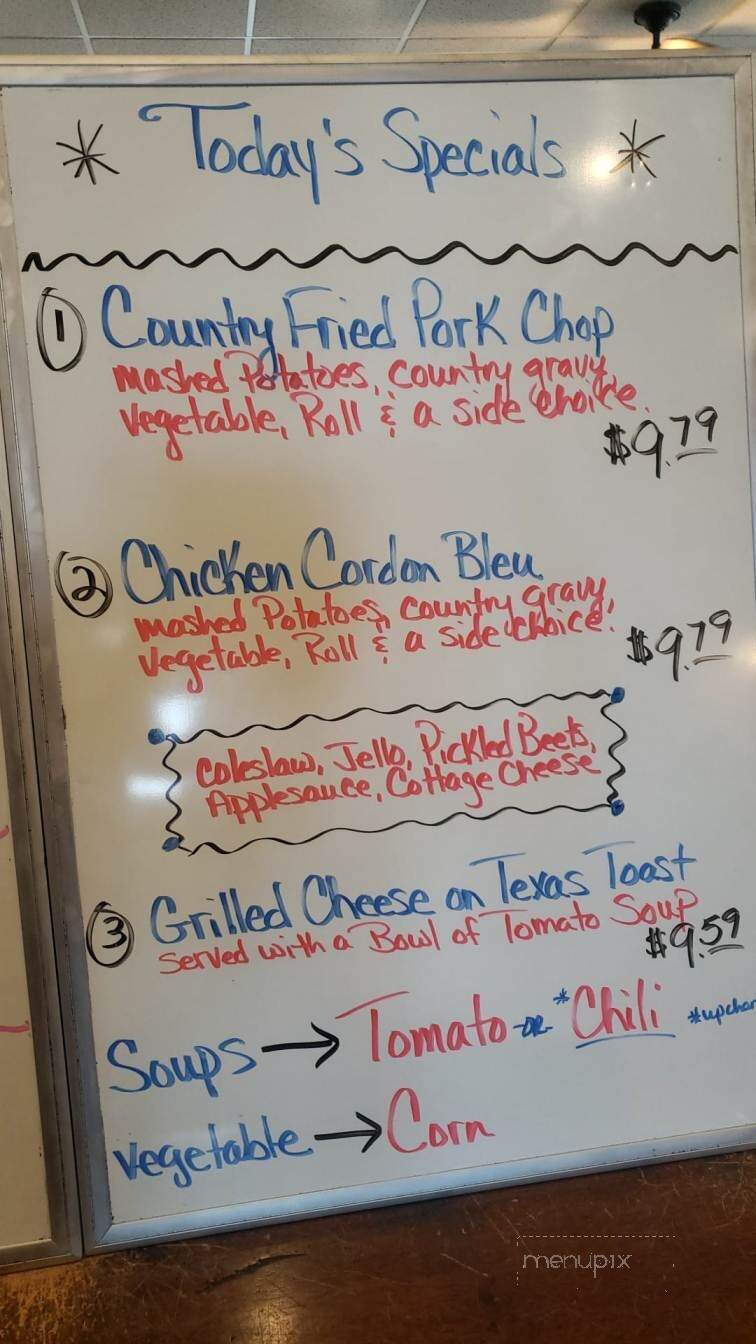 * Today's Specials *
① Country Fried Pork Chop
mashed Potatoes, country gravy,
vegetable, Roll & a side choice.
$9.79
② Chicken Cordon Bleu
mashed Potatoes, country gravy,
vegetable, Roll & a side choice.
$9.79
Coleslaw, Jello, Pickled Beets,
Applesauce, Cottage Cheese
③ Grilled Cheese on Texas Toast
served with a Bowl of Tomato Soup
$9.59
Soups → Tomato -OR- *Chili *upchar
vegetable → Corn
menupix